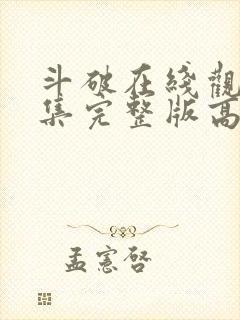 斗破在綫觀
集完整版高
孟憲啓